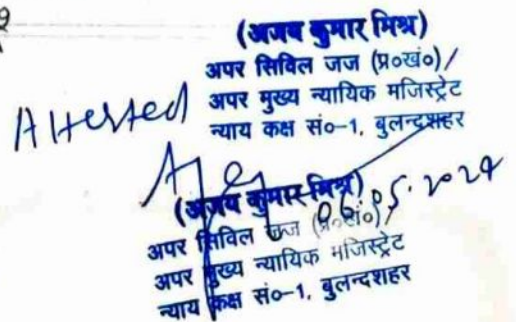 (अजय कुमार मिश्र)
अपर सिविल जज (प्र०खं०)/
अपर मुख्य न्यायिक मजिस्ट्रेट
न्याय कक्ष सं०-1, बुलन्दशहर
Attested
06.05.2024
(अजय कुमार मिश्र)
अपर सिविल जज (प्र०खं०)/
अपर मुख्य न्यायिक मजिस्ट्रेट
न्याय कक्ष सं०-1, बुलन्दशहर